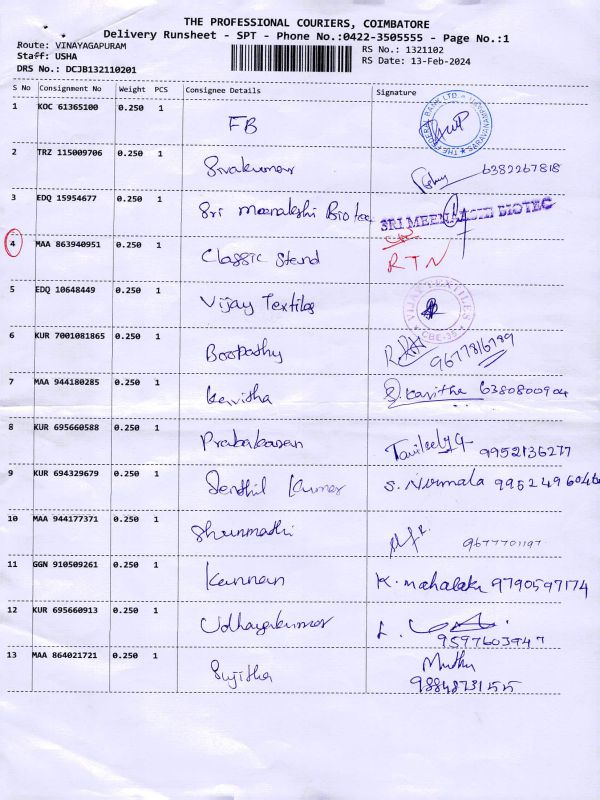 THE PROFESSIONAL COURIERS, COIMBATORE
Delivery Runsheet - SPT - Phone No.:0422-3505555 - Page No.:1
Route: VINAYAGAPURAM
Staff: USHA
DRS No.: DCJB132110201
RS No.: 1321102
RS Date: 13-Feb-2024
S No Consignment No Weight PCS Consignee Details Signature
1 KOC 61365100 0.250 1 FB
THE FEDERAL BANK LTD. SARAVANAMPATTI
2 TRZ 115009706 0.250 1 Sivakumar 6382267818
3 EDQ 15954677 0.250 1 Sri meenakshi Biotec SRI MEENAKSHI BIOTEC
4 MAA 863940951 0.250 1 Classic Stand RTN
5 EDQ 10648449 0.250 1 Vijay Textiles VIJAY TEXTILES CBE-35
6 KUR 7001081865 0.250 1 Boopathy 9677816789
7 MAA 944180285 0.250 1 Kavitha S. Kavitha 6380800904
8 KUR 695660588 0.250 1 Prabakaran 9952136277
9 KUR 694329679 0.250 1 Senthil Kumar S. Nirmala 995249604
10 MAA 944177371 0.250 1 Shunmathi 9677701197
11 GGN 910509261 0.250 1 Kannan K. mahalaks 9790597174
12 KUR 695660913 0.250 1 Udhayakumar L. 9597603947
13 MAA 864021721 0.250 1 Sujitha Muthu
9884873155